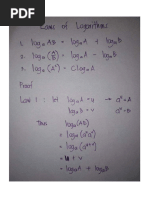 Laws of Logarithms
1. logₐ AB = logₐ A + logₐ B
2. logₐ (A/B) = logₐ A - logₐ B
3. logₐ (Aᶜ) = C logₐ A
Proof
Law 1: let logₐ A = u → aᵘ = A
logₐ B = v aᵛ = B
Thus logₐ (AB)
= logₐ (aᵘaᵛ)
= logₐ (aᵘ⁺ᵛ)
= u + v
= logₐ A + logₐ B